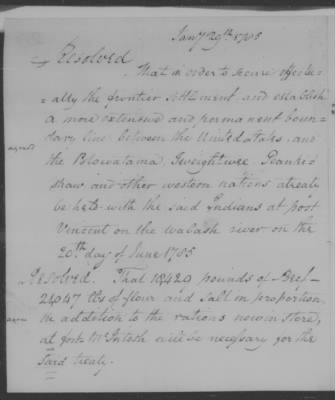 Jany 29th 1785
Resolved
That in order to secure effectu-
-ally the frontier settlement and establish
a more extensive and permanent boun-
dary line between the United states, and
agreed
the Potowatama, Tweightwee, Peanke-
shaw and other western nations a treaty
be held with the said Indians at post
Vincent on the wabash river on the
20th day of June 1785
Resolved. That 18429 pounds of Beef
24047 lbs of flour and Salt in proportion
agreed
in addition to the rations now in store,
at fort McIntosh will be necessary for the
said treaty.